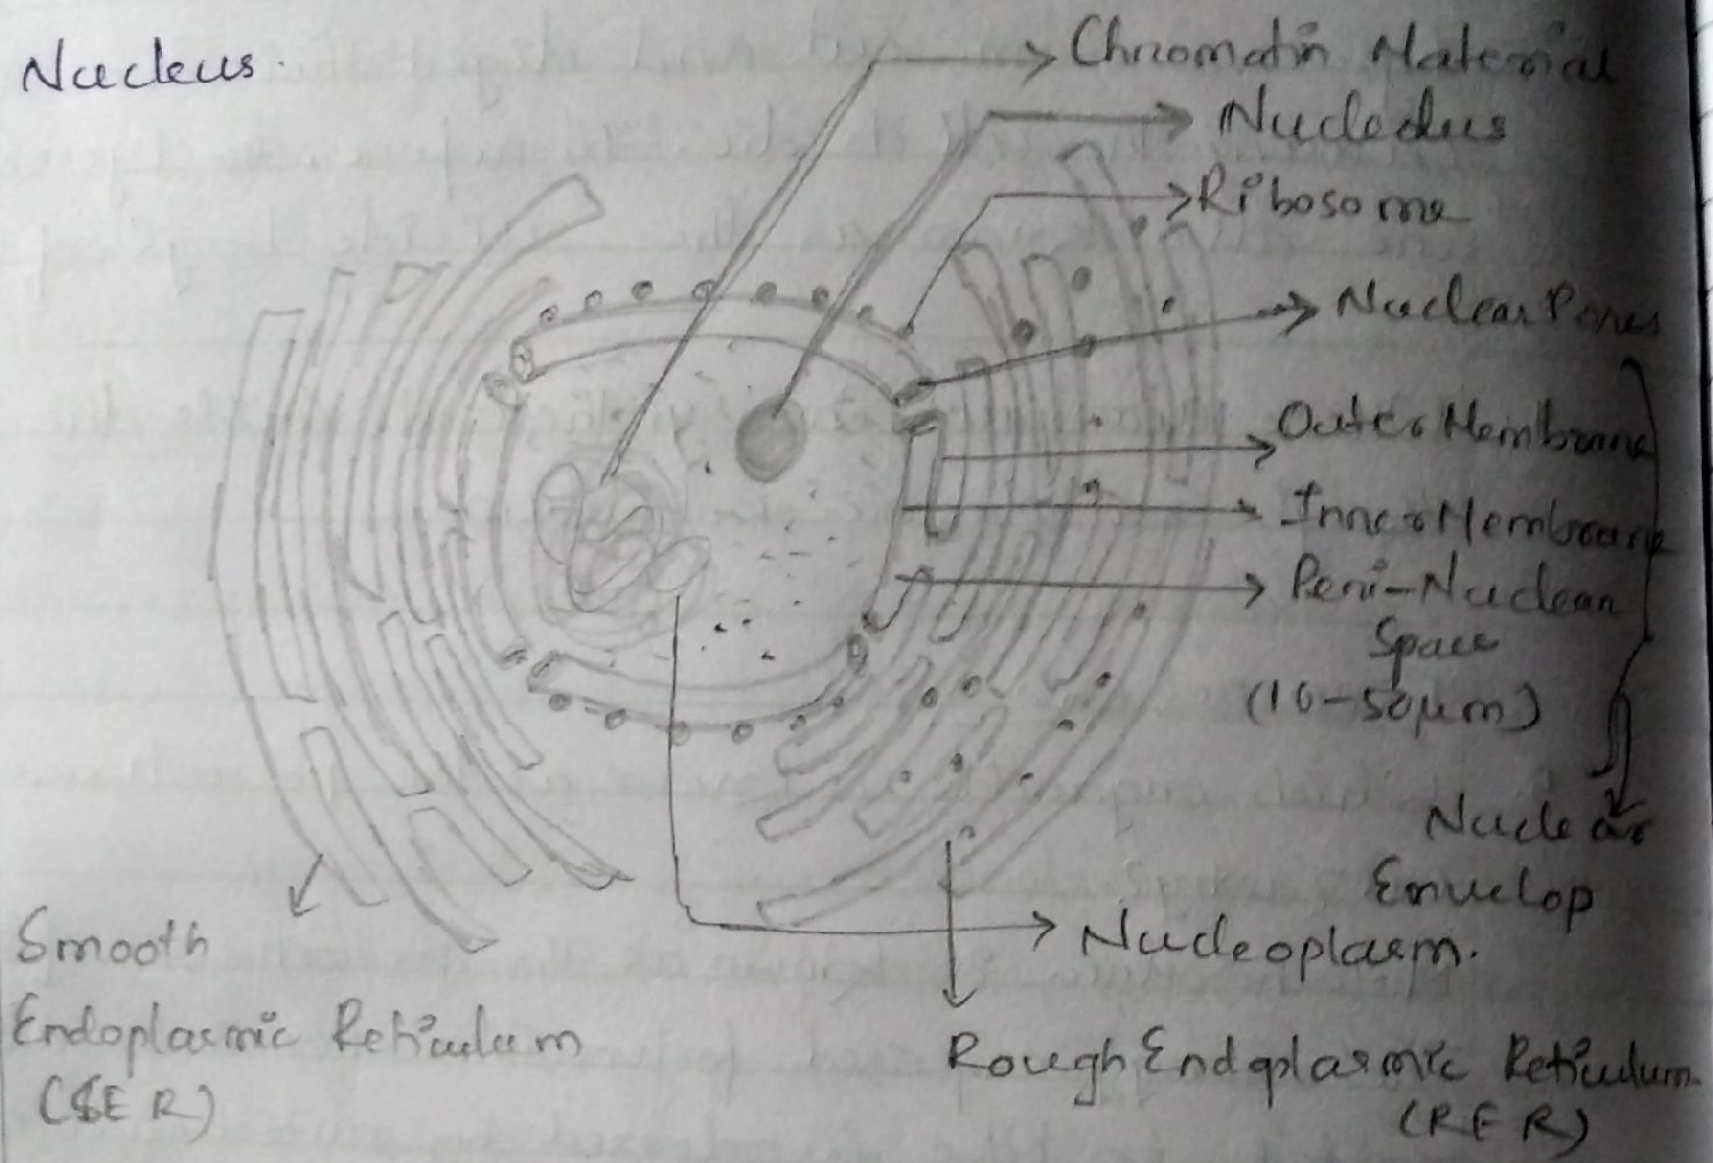 Nucleus.
Chromatin Material
Nucleolus
Ribosome
Nuclear Pores
Outer Membrane
Inner Membrane
Peri-Nuclear
Space
(10-50μm)
Nuclear
Envelop
Nucleoplasm.
Smooth
Endoplasmic Reticulum
(SER)
Rough Endoplasmic Reticulum.
(RER)